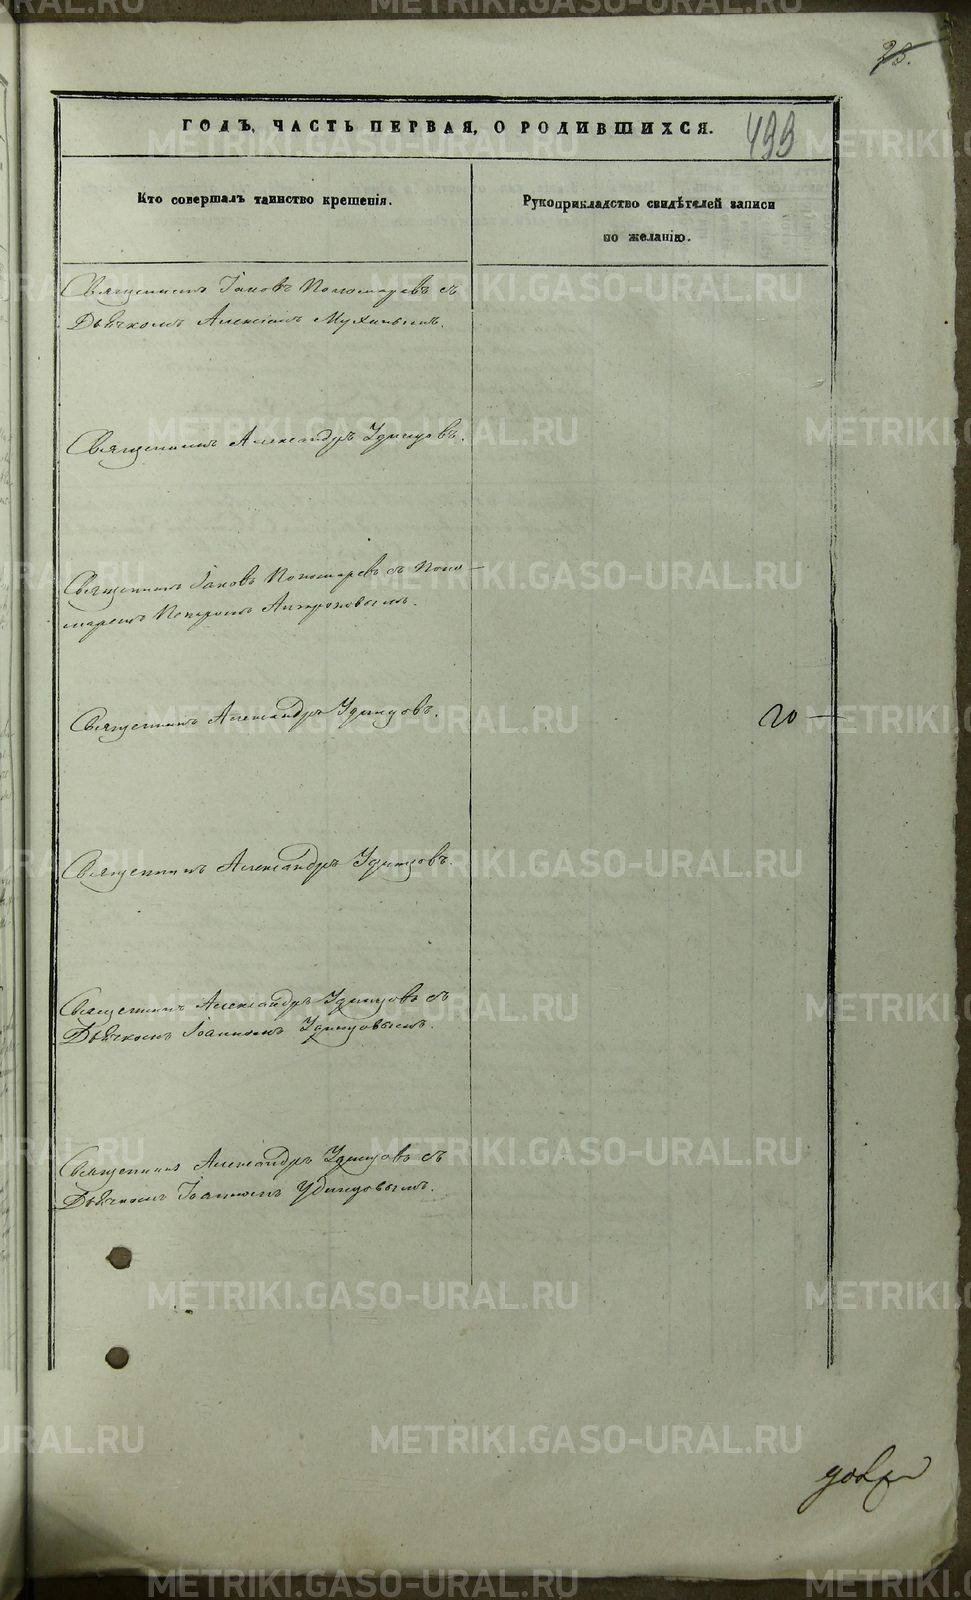 23.
ГОДЪ, ЧАСТЬ ПЕРВАЯ, О РОДИВШИХСЯ.
499
Кто совершалъ таинство крещенія.
Рукоприкладство свидѣтелей записи
по желанію.
Священникъ Іаковъ Пономаревъ съ
Дьячкомъ Алексіемъ Мухинымъ.
Священникъ Александръ Удинцовъ.
Священникъ Іаковъ Пономаревъ съ Поно-
маремъ Петромъ
Священникъ Александръ Удинцовъ.
20 —
Священникъ Александръ Удинцовъ.
Священникъ Александръ Удинцовъ съ
Дьячкомъ Іоанномъ Удинцовымъ.
Священникъ Александръ Удинцовъ съ
Дьячкомъ Іоанномъ Удинцовымъ.
METRIKI.GASO-URAL.RU